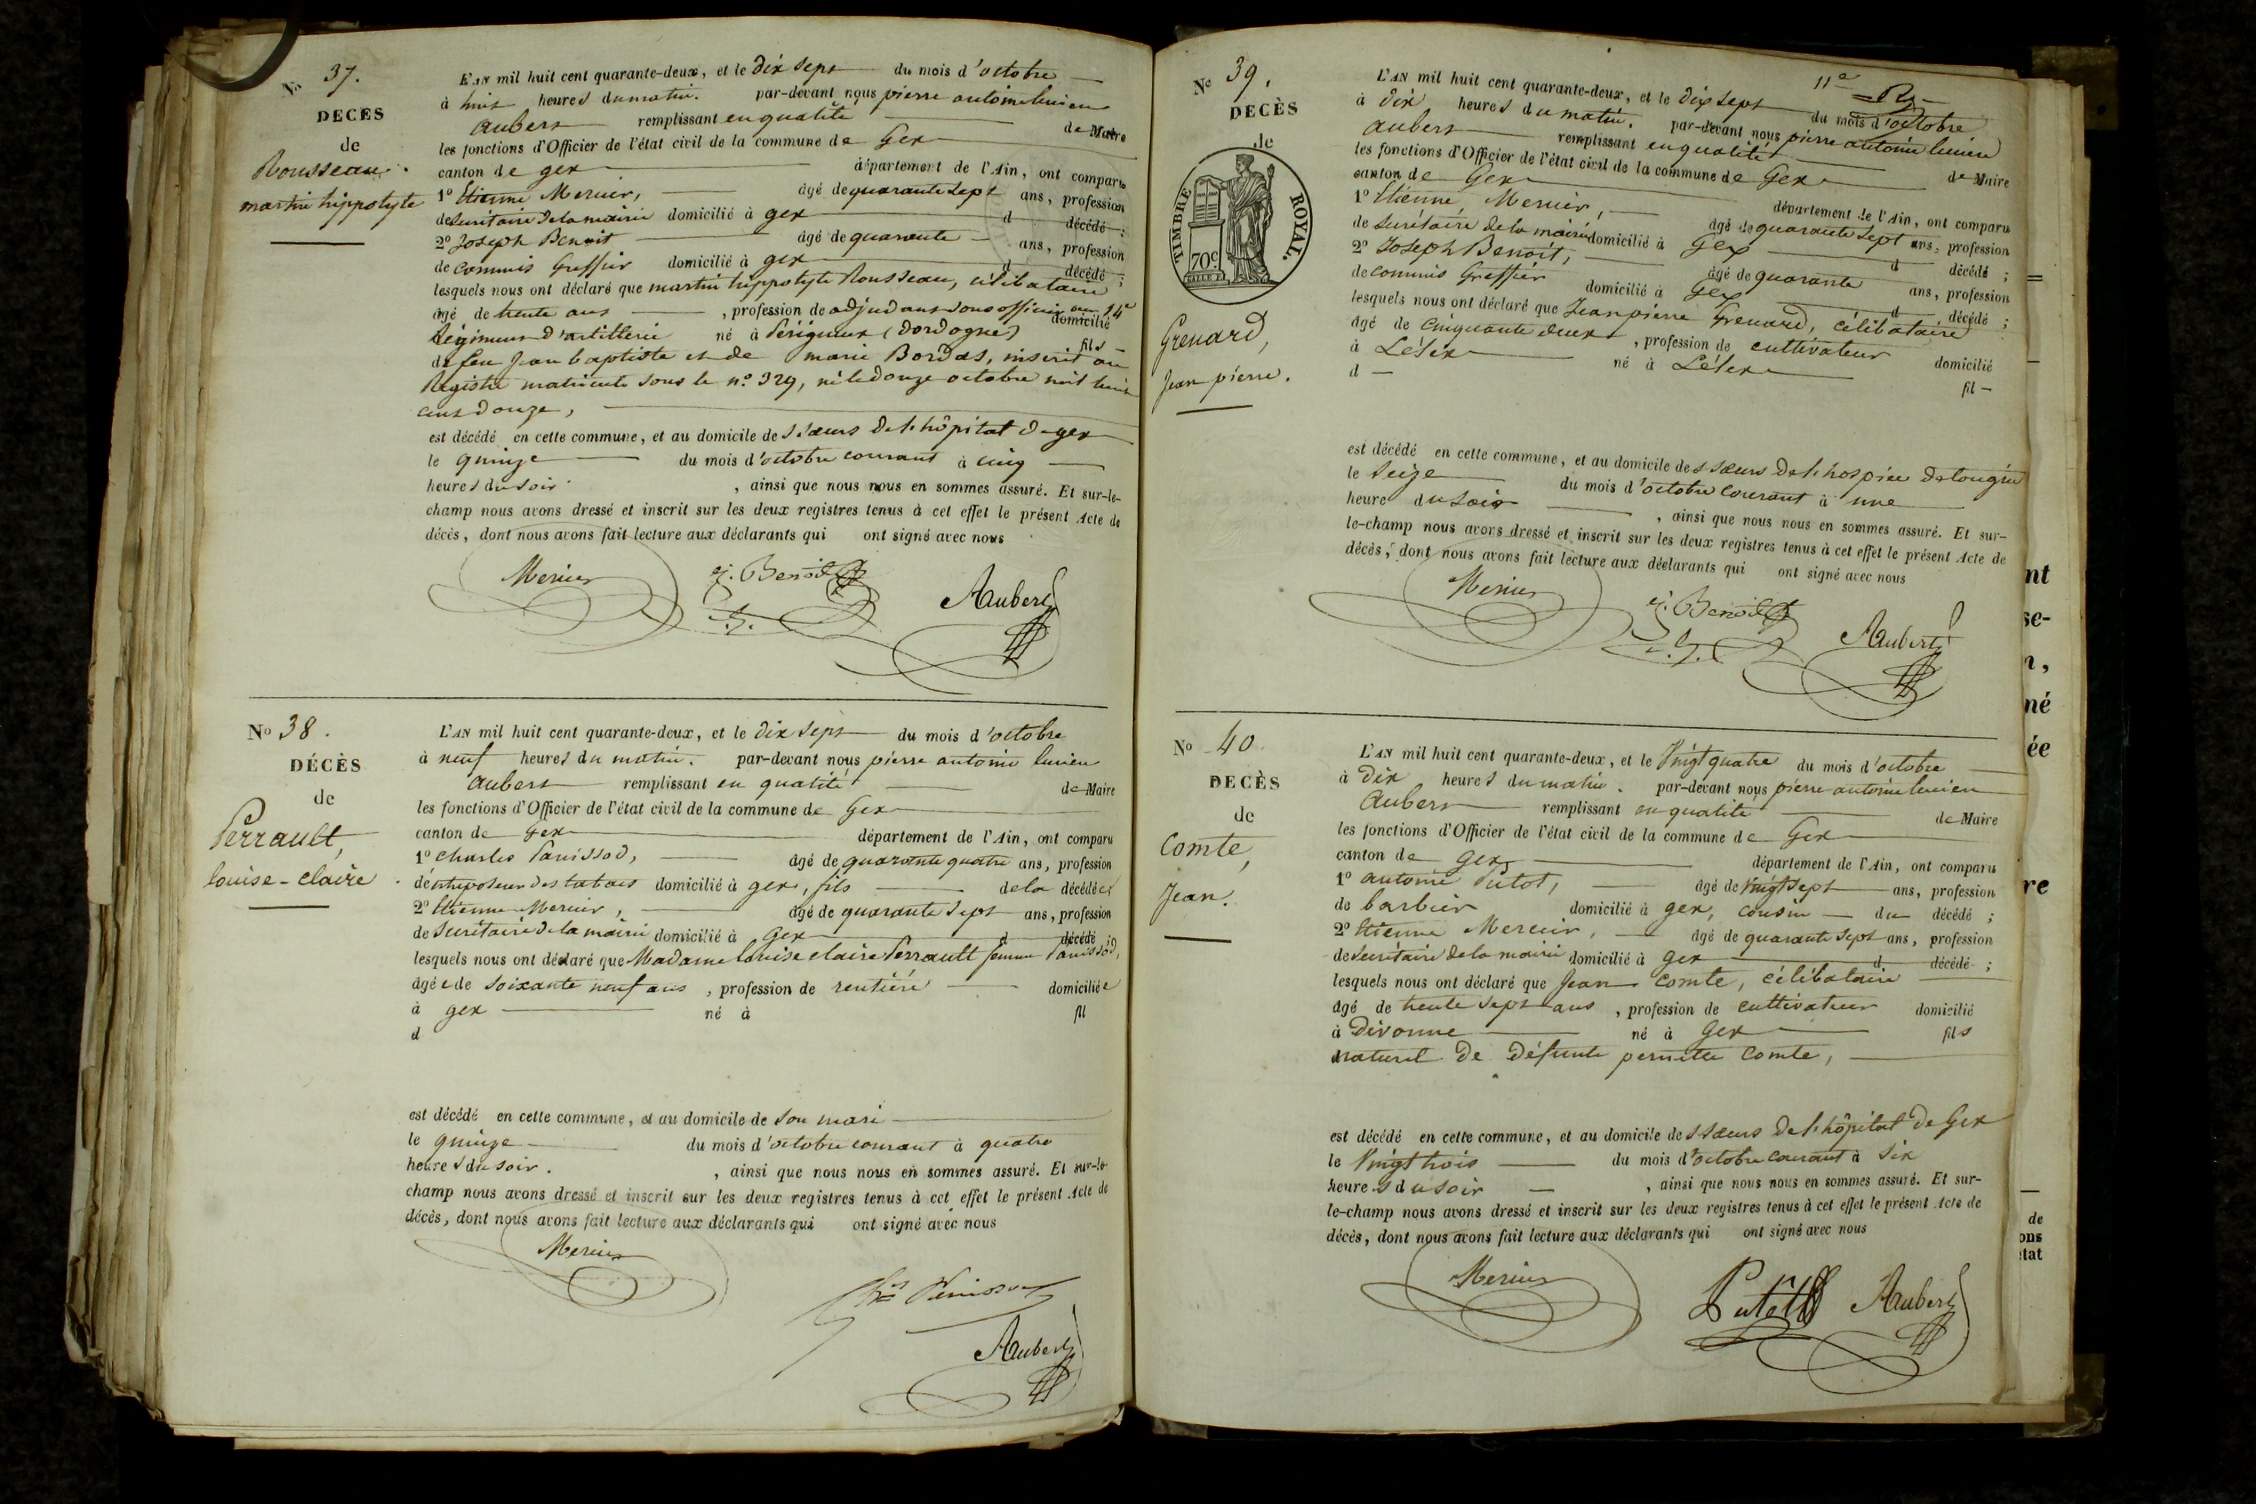 No 37.
DÉCÈS
de
Rousseau
martin hippolyte
L'AN mil huit cent quarante-deux, et le dix sept du mois d'octobre
à huit heures du matin. par-devant nous pierre antoine lucien
Aubert remplissant en qualité de Maire
les fonctions d'Officier de l'état civil de la commune de Gex
canton de gex département de l'Ain, ont comparu
1º Etienne Mercier, âgé de quarante sept ans, profession
de secrétaire de la mairie domicilié à gex d décédé ;
2º Joseph Benoit âgé de quarante ans, profession
de commis Greffier domicilié à gex d décédé ;
lesquels nous ont déclaré que martin hippolyte Rousseau, célibataire
âgé de trente ans , profession de adjudant sous officier au 14e domicilié
Régiment d'artillerie né à Périgueux (Dordogne) fils
de feu Jean baptiste et de marie Bordas, inscrit au
Registre matricule sous le nº 329, né le douze octobre mil huit
cent douze,
est décédé en cette commune, et au domicile des sœurs de l'hôpital de gex
le quinze du mois d'octobre courant à cinq
heures du soir , ainsi que nous nous en sommes assuré. Et sur-le-
champ nous avons dressé et inscrit sur les deux registres tenus à cet effet le présent Acte de
décès, dont nous avons fait lecture aux déclarants qui ont signé avec nous
Mercier j. Benoit Aubert
No 38.
DÉCÈS
de
Perrault,
louise-claire
L'AN mil huit cent quarante-deux, et le dix sept du mois d'octobre
à neuf heures du matin. par-devant nous pierre antoine lucien
Aubert remplissant en qualité de Maire
les fonctions d'Officier de l'état civil de la commune de Gex
canton de Gex département de l'Ain, ont comparu
1º charles Panissod, âgé de quarante quatre ans, profession
d'entreposeur des tabacs domicilié à gex, fils de la décédée
2º Etienne Mercier, âgé de quarante sept ans, profession
de secrétaire de la mairie domicilié à Gex d décédé ;
lesquels nous ont déclaré que Madame louise claire Perrault femme Panissod,
âgée de soixante neuf ans , profession de rentière domiciliée
à gex né à fil
d
est décédé en cette commune, et au domicile de son mari
le quinze du mois d'octobre courant à quatre
heures du soir. , ainsi que nous nous en sommes assuré. Et sur-le-
champ nous avons dressé et inscrit sur les deux registres tenus à cet effet le présent Acte de
décès, dont nous avons fait lecture aux déclarants qui ont signé avec nous
Mercier
Panissod
Aubert
11e
No 39.
DECÈS
de
TIMBRE ROYAL.
70c
Grenard,
Jean pierre.
L'AN mil huit cent quarante-deux, et le dix sept du mois d'octobre
à dix heures du matin. par-devant nous pierre antoine lucien
Aubert remplissant en qualité de Maire
les fonctions d'Officier de l'état civil de la commune de Gex
canton de Gex département de l'Ain, ont comparu
1º Etienne Mercier, âgé de quarante sept ans, profession
de secrétaire de la mairie domicilié à Gex d décédé ;
2º Joseph Benoit, âgé de quarante ans, profession
de commis Greffier domicilié à Gex d décédé ;
lesquels nous ont déclaré que Jean pierre Grenard, célibataire
âgé de cinquante deux , profession de cultivateur domicilié
à Lélex né à Lélex fil
d
est décédé en cette commune, et au domicile des sœurs de l'hospice de tougin
le seize du mois d'octobre courant à une
heure du soir , ainsi que nous nous en sommes assuré. Et sur-
le-champ nous avons dressé et inscrit sur les deux registres tenus à cet effet le présent Acte de
décès, dont nous avons fait lecture aux déclarants qui ont signé avec nous
Mercier j. Benoit Aubert
No 40
DECÈS
de
Comte,
Jean.
L'AN mil huit cent quarante-deux, et le Vingt quatre du mois d'octobre
à dix heures du matin. par-devant nous pierre antoine lucien
Aubert remplissant en qualité de Maire
les fonctions d'Officier de l'état civil de la commune de Gex
canton de gex département de l'Ain, ont comparu
1º antoine Putot, âgé de Vingt sept ans, profession
de barbier domicilié à gex, cousin du décédé ;
2º Etienne Mercier, âgé de quarante sept ans, profession
de secrétaire de la mairie domicilié à gex d décédé ;
lesquels nous ont déclaré que Jean Comte, célibataire
âgé de trente sept ans , profession de cultivateur domicilié
à Divonne né à Gex fils
naturel de défunte pernette Comte,
est décédé en cette commune, et au domicile des sœurs de l'hôpital de Gex
le Vingt trois du mois d'octobre courant à six
heures du soir , ainsi que nous nous en sommes assuré. Et sur-
le-champ nous avons dressé et inscrit sur les deux registres tenus à cet effet le présent Acte de
décès, dont nous avons fait lecture aux déclarants qui ont signé avec nous
Mercier Putot Aubert
nt
se-
n,
né
ée
re
de
ons
état